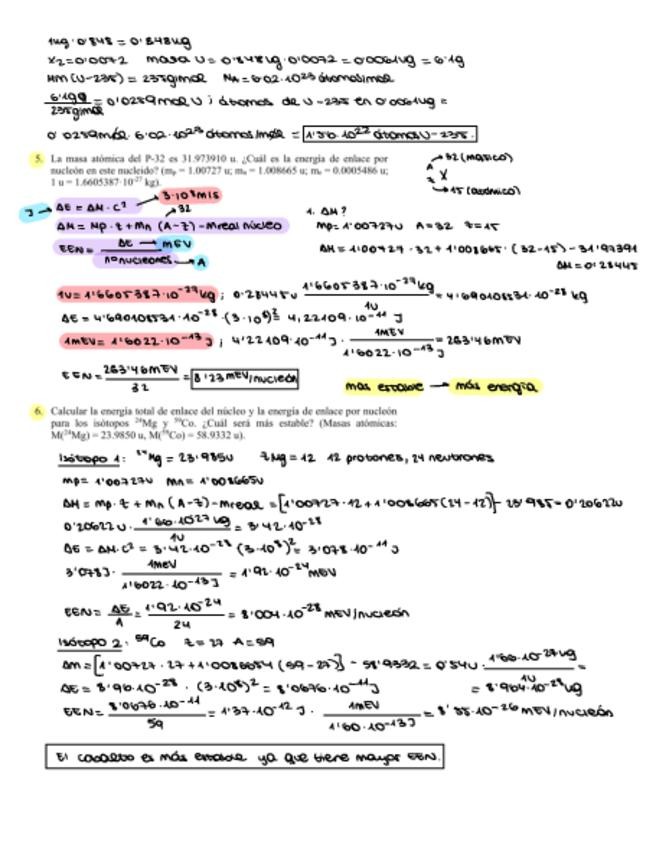 1ug · 0'848 = 0'848ug
X₂=0'0072 masa U = 0'848ug · 0'0072 = 0'0061ug = 6'1g
Mm (U-235) = 235g/mol NA = 6'02 · 10²³ átomos/mol
6'10g / 235g/mol = 0'0259mol U ; átomos de U-235 en 0'0061ug =
0'0259mol · 6'02 · 10²³ átomos/mol = 1'56 · 10²² átomos U-235.
5. La masa atómica del P-32 es 31.973910 u. ¿Cuál es la energía de enlace por
nucleón en este nucleido? (mp = 1.00727 u; mn = 1.008665 u; me = 0.0005486 u;
1 u = 1.6605387·10⁻²⁷ kg).
A → 32 (másico)
X
Z → 15 (atómico)
J → ΔE = ΔM · C² → 3·10⁸ m/s
ΔM = Mp · Z + Mn (A-Z) - Mreal núcleo → 32
EEN = ΔE → MEV / nº nucleones → A
1. ΔM?
mp = 1'00727U A = 32 Z = 15
ΔM = 1'00727 · 32 + 1'008665 · (32-15) - 31'97391
ΔM = 0'28445
1U = 1'6605387 · 10⁻²⁷ kg ; 0'28445U · 1'6605387 · 10⁻²⁷ kg / 1U = 4'690108531 · 10⁻²⁸ kg
ΔE = 4'690108531 · 10⁻²⁸ · (3·10⁸)² = 4,22109 · 10⁻¹¹ J
1MEV = 1'6022 · 10⁻¹³ J ; 4'22109 · 10⁻¹¹ J · 1MEV / 1'6022 · 10⁻¹³ J = 263'46MEV
EEN = 263'46MEV / 32 = 8'23 MEV/nucleón
mas estable → más energía
6. Calcular la energía total de enlace del núcleo y la energía de enlace por nucleón
para los isótopos ²⁴Mg y ⁵⁹Co. ¿Cuál será más estable? (Masas atómicas:
M(²⁴Mg) = 23.9850 u, M(⁵⁹Co) = 58.9332 u).
Isótopo 1: ²⁴Mg = 23'985U Z Mg = 12 12 protones, 24 neutrones
mp = 1'00727U Mn = 1'008665U
ΔM = Mp · Z + Mn (A-Z) - Mreal = [1'00727 · 12 + 1'008665 (24-12)] - 23'985 = 0'20622U
0'20622 U · 1'66 · 10²⁷ ug / 1U = 3'42 · 10⁻²⁸
ΔE = ΔM · C² = 3'42 · 10⁻²⁸ (3·10⁸)² = 3'078 · 10⁻¹¹ J
3'078J · 1MEV / 1'6022 · 10⁻¹³ J = 1'92 · 10⁻²⁴ MEV
EEN = ΔE / A = 1'92 · 10⁻²⁴ / 24 = 8'004 · 10⁻²⁸ MEV/nucleón
Isótopo 2: ⁵⁹Co Z = 27 A = 59
ΔM = [1'00727 · 27 + 1'0086654 (59-27)] - 58'9332 = 0'54U · 1'66 · 10⁻²⁷ ug / 1U =
ΔE = 8'96 · 10⁻²⁸ · (3·10⁸)² = 8'0676 · 10⁻¹¹ J = 8'964 · 10⁻²⁸ ug
EEN = 8'0676 · 10⁻¹¹ / 59 = 1'37 · 10⁻¹² J · 1MEV / 1'60 · 10⁻¹³ J = 8'55 · 10⁻²⁶ MEV/nucleón
El cobalto es más estable ya que tiene mayor EEN.